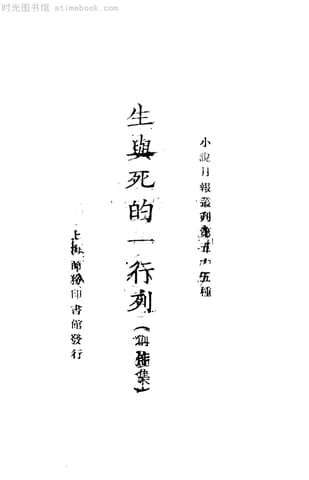 时光图书馆 atimebook.com
小說月報叢刊第五十五種
生與死的一行列(創作集)
上海商務印書館發行